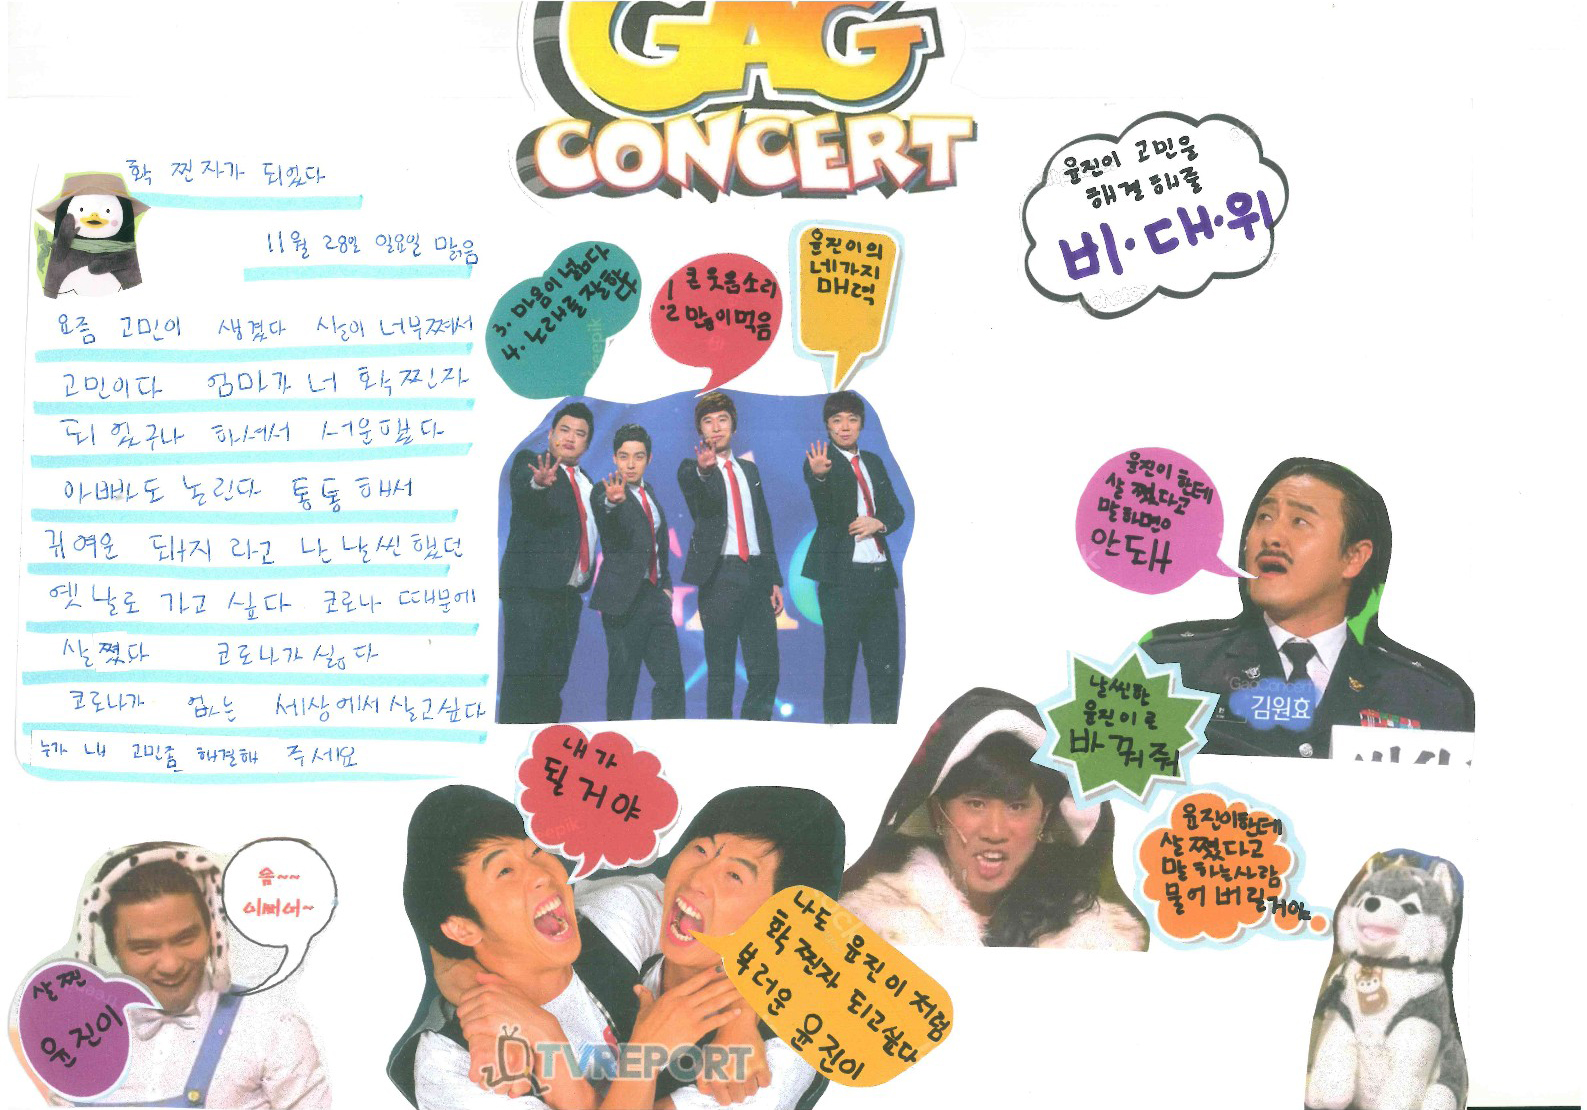 GAG
CONCERT
확 찐자가 되었다
11월 28일 일요일 맑음
요즘 고민이 생겼다 살이 너무쪄서
고민이다 엄마가 너 확찐자
되었구나 하셔서 서운했다
아빠도 놀린다 통통해서
귀여운 돼지라고 난 날씬했던
옛날로 가고 싶다 코로나 때문에
살쪘다 코로나가 싫다
코로나가 없는 세상에서 살고싶다
누가 내 고민좀 해결해 주세요
3. 마음이 넓다
4. 노래를 잘함
1. 큰 웃음소리
2. 많이 먹음
윤진이의
네가지
매력
윤진이 고민을
해결해줄
비·대·위
윤진이한테
살 쪘다고
말하면
안돼
GagConcert
김원효
날씬한
윤진이로
바꿔줘
윤진이한테
살 쪘다고
말하는사람
물어버릴거야
내가
될거야
나도 윤진이처럼
확찐자 되고싶다
부러운 윤진이
TVREPORT
음~~
이뻐어~
살찐
윤진이